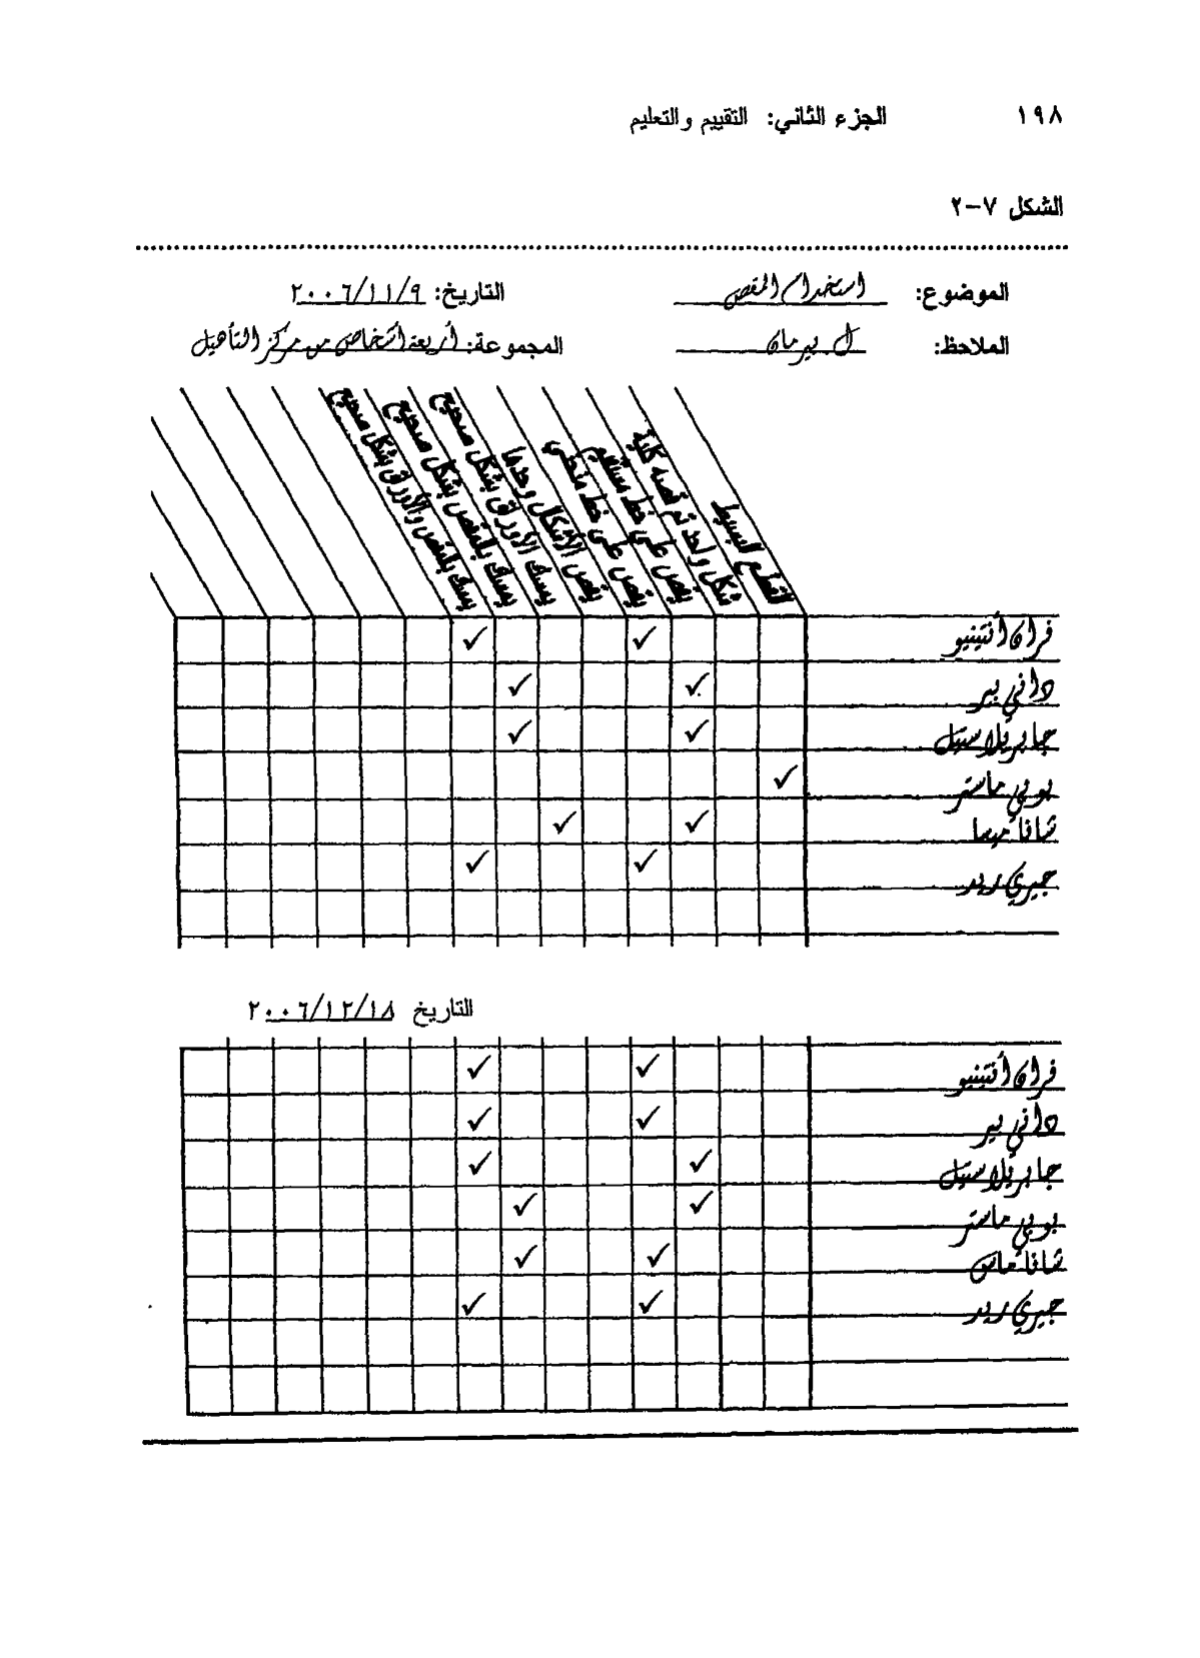 ١٩٨ الجزء الثاني: التقييم والتعليم
الشكل ٧-٢
الموضوع: استخدام المقص التاريخ: ٢٠٠٦/١١/٩
الملاحظ: ل. بيرمان المجموعة: أربعة أشخاص من مركز التأهيل
القطع البسيط
شكل واحد ثم قصه كلية
يقص على خط مستقيم
يقص على خط منحني
يقص الأشكال وحدها
يمسك الأوراق بشكل صحيح
يمسك بالمقص بشكل صحيح
يمسك بالمقص والأوراق بشكل صحيح
فران أنتينيو
داني بير
جابريلا ستيل
بوبي ماستر
شانا ميسا
جيري ريد
التاريخ ٢٠٠٦/١٢/١٨
فران أنتينيو
داني بير
جابريلا ستيل
بوبي ماستر
شانا ماس
جيري ريد